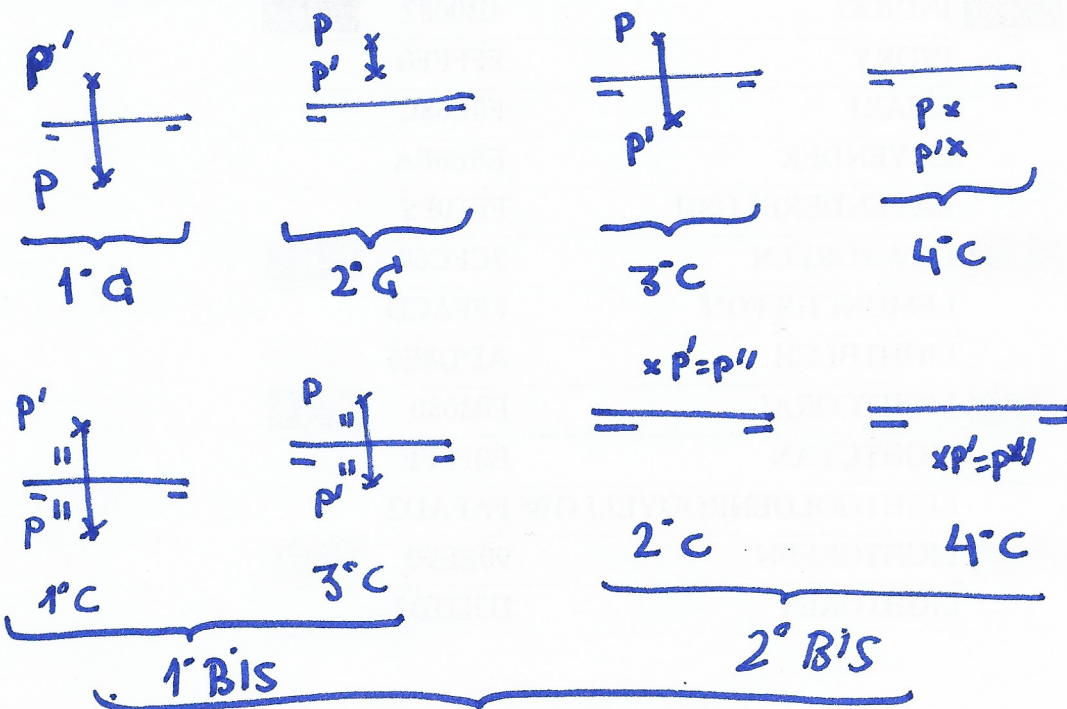 P'
P
1º C
P
P'
2º C
P
P'
3º C
P
P'
4º C
P'
P
1º C
P
P'
3º C
P'=P"
2º C
P'=P"
4º C
1º Bis
2º Bis